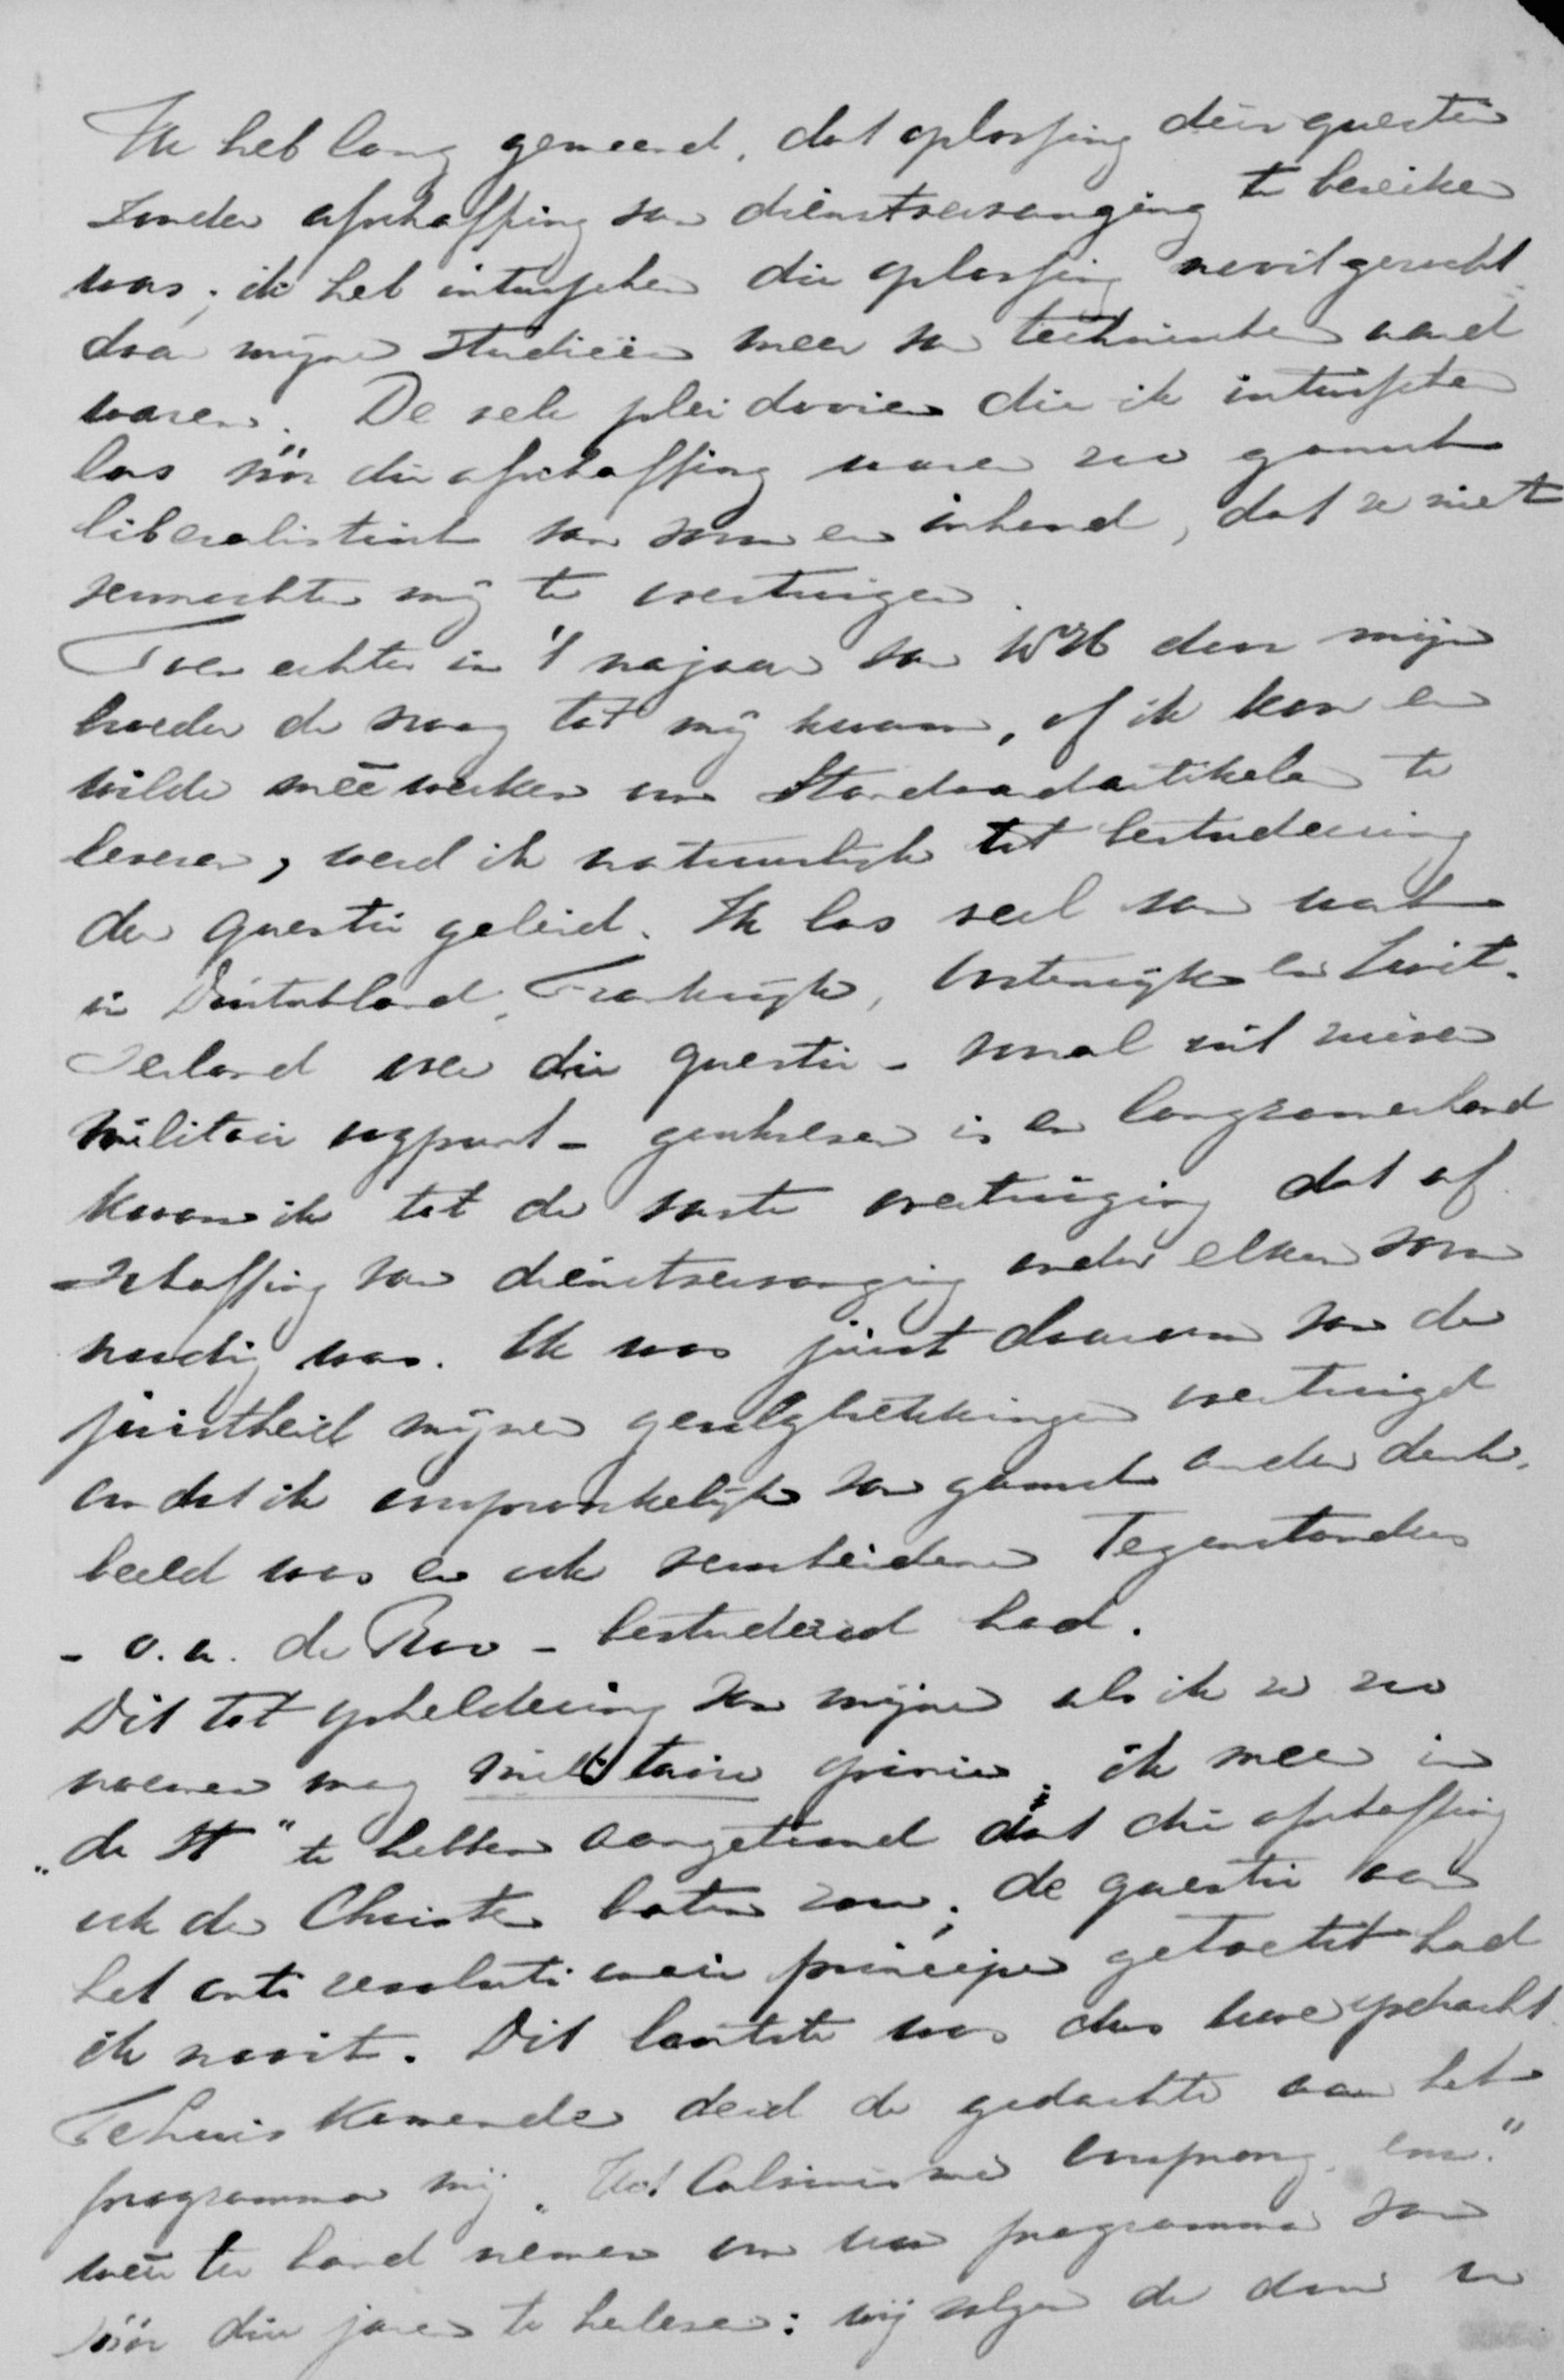 Ik heb lang gemeend, dat oplossing dier questie
zonder afschaffing van dienstvervanging te bereiken
was; ik heb intusschen die oplossing nooit gezocht
daar mijne studieën meer van technischen aard
waren. De vele pleidooien die ik intusschen
las vóór die afschaffing waren zoo gansch
liberalistisch van vorm en inhoud, dat ze niet
vermochten mij te overtuigen.
Toen echter in 't najaar van door mijn
broeder de vraag tot mij kwam, of ik kon en
wilde meêwerken om Standaardartikelen te
leveren, werd ik natuurlijk tot bestudeering
der questie geleid. Ik las veel van wat
in Duitschland, Frankrijk, Oostenrijk en Zwit-
serland over die questie - vooral uit zuiver
militair oogpunt - geschreven is en langzamerhand
kwam ik tot de vaste overtuiging dat af-
schaffing van dienstvervanging onder elken vorm
noodig was. Ik was juist daarom van de
juistheid mijner gevolgtrekkingen overtuigd
omdat ik oorspronkelijk van gansch ander denk-
beeld was en ook verscheidene Tegenstanders
- o.a. de Roo - bestudeerd had.
Dit tot opheldering van mijne als ik ze zoo
noemen mag militaire opinie; ik meen in
"de St" te hebben aangetoond dat die afschaffing
ook den Christen baten zou; de questie aan
het anti revolutionair principe getoetst had
ik nooit. Dit laatste was dus uwe opdracht.
Tehuis komende deed de gedachte aan het
programma mij "Het Calvinisme oorsprong enz."
weêr ter hand nemen om uw programma van
vóór drie jaren te herlezen: wij volgen de door u